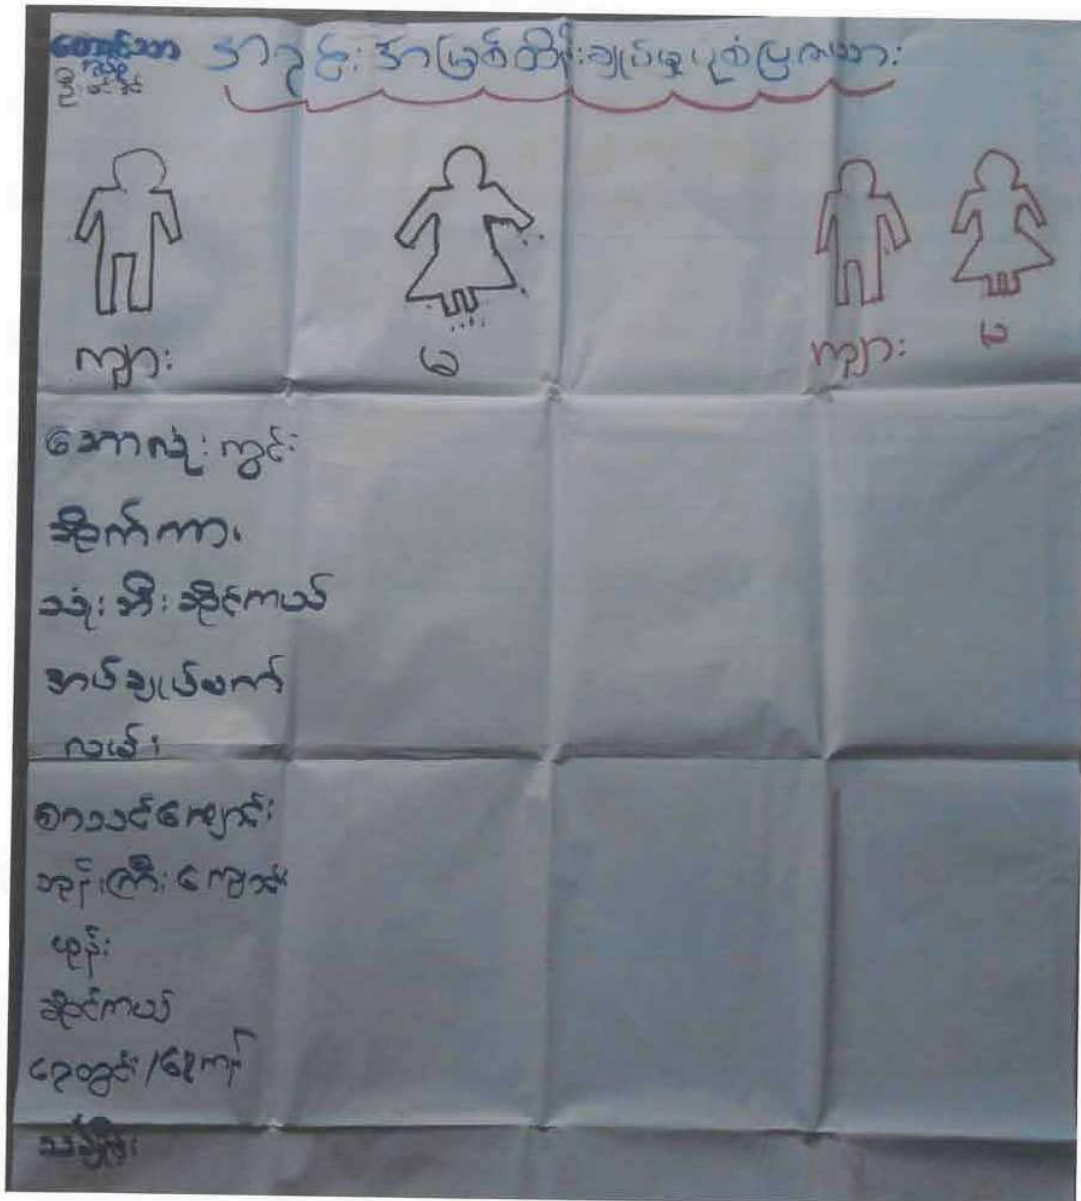 တောင်သာ
အခွင့်အမြတ်ထိန်းချုပ်မှုပုံစံပြဇယား
ကျား မ ကျား မ
ဘောလုံးကွင်း
ဆိုက်ကား
သုံးဘီးဆိုင်ကယ်
အပ်ချုပ်စက်
လမ်း
စာသင်ကျောင်း
ဘုန်းကြီးကျောင်း
ဖုန်း
ဆိုင်ကယ်
ရေတွင်း/ရေကန်